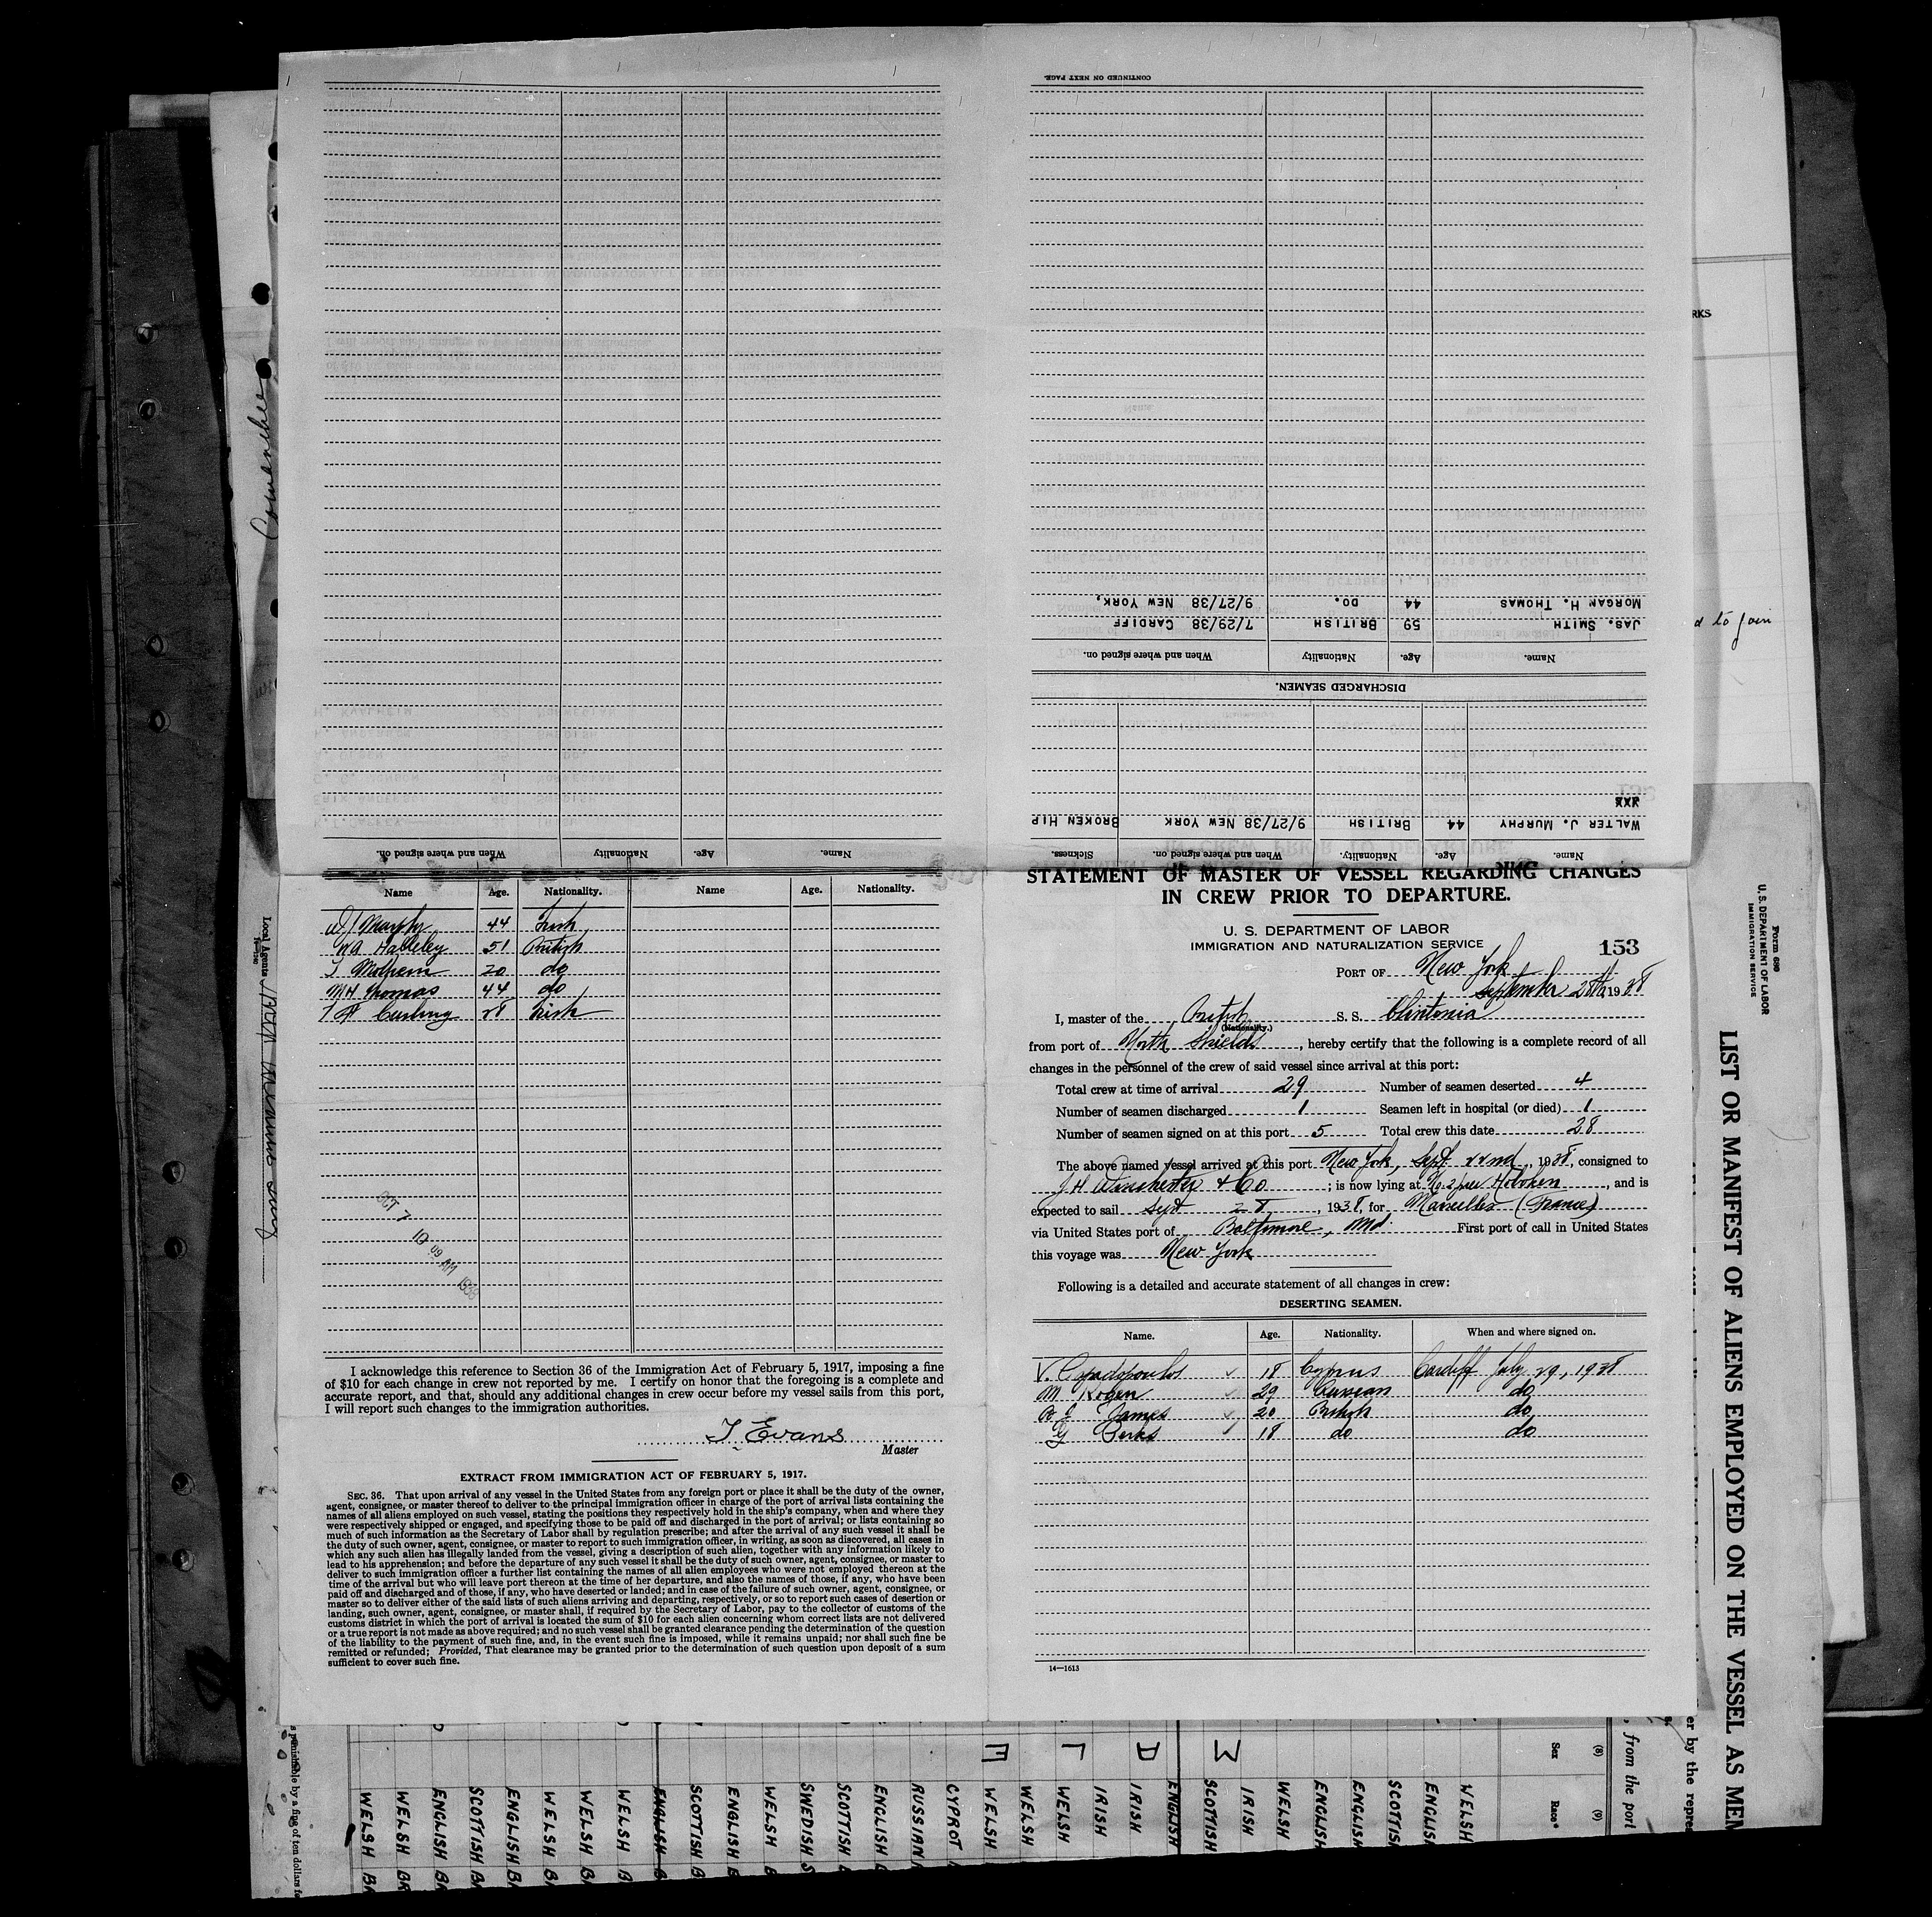 CONTINUED ON NEXT PAGE.
MORGAN H. THOMAS 44 DO. 9/27/38 NEW YORK,
JAS. SMITH 59 BRITISH 7/29/38 CARDIFF
Name. Age. Nationality When and where signed on.
DISCHARGED SEAMEN.
XXX
WALTER J. MURPHY 44 BRITISH 9/27/38 NEW YORK BROKEN HIP
Name. Age. Nationality. When and where signed on. Sickness.
Name. Age. Nationality When and where signed on.
Comanchee
RKS
d to join
Name Age. Nationality. Name Age. Nationality.
W J Murphy 44 Irish
W A Halleley 51 British
20 do
M H Thomas 44 do
28 Irish
OCT 7 10 09 AM 1938
I acknowledge this reference to Section 36 of the Immigration Act of February 5, 1917, imposing a fine
of $10 for each change in crew not reported by me. I certify on honor that the foregoing is a complete and
accurate report, and that, should any additional changes in crew occur before my vessel sails from this port,
I will report such changes to the immigration authorities.
T. Evans
Master
EXTRACT FROM IMMIGRATION ACT OF FEBRUARY 5, 1917.
SEC. 36. That upon arrival of any vessel in the United States from any foreign port or place it shall be the duty of the owner,
agent, consignee, or master thereof to deliver to the principal immigration officer in charge of the port of arrival lists containing the
names of all aliens employed on such vessel, stating the positions they respectively hold in the ship's company, when and where they
were respectively shipped or engaged, and specifying those to be paid off and discharged in the port of arrival; or lists containing so
much of such information as the Secretary of Labor shall by regulation prescribe; and after the arrival of any such vessel it shall be
the duty of such owner, agent, consignee, or master to report to such immigration officer, in writing, as soon as discovered, all cases in
which any such alien has illegally landed from the vessel, giving a description of such alien, together with any information likely to
lead to his apprehension; and before the departure of any such vessel it shall be the duty of such owner, agent, consignee, or master to
deliver to such immigration officer a further list containing the names of all alien employees who were not employed thereon at the
time of the arrival but who will leave port thereon at the time of her departure, and also the names of those, if any, who have been
paid off and discharged and of those, if any, who have deserted or landed; and in case of the failure of such owner, agent, consignee, or
master so to deliver either of the said lists of such aliens arriving and departing, respectively, or so to report such cases of desertion or
landing, such owner, agent, consignee, or master shall, if required by the Secretary of Labor, pay to the collector of customs of the
customs district in which the port of arrival is located the sum of $10 for each alien concerning whom correct lists are not delivered
or a true report is not made as above required; and no such vessel shall be granted clearance pending the determination of the question
of the liability to the payment of such fine, and, in the event such fine is imposed, while it remains unpaid; nor shall such fine be
remitted or refunded; Provided, That clearance may be granted prior to the determination of such question upon deposit of a sum
sufficient to cover such fine.
STATEMENT OF MASTER OF VESSEL REGARDING CHANGES
IN CREW PRIOR TO DEPARTURE.
U. S. DEPARTMENT OF LABOR
IMMIGRATION AND NATURALIZATION SERVICE
153
PORT OF New York
September 28th, 1938
I, master of the British S. S. Clintonia
(Nationality.)
from port of North Shields, hereby certify that the following is a complete record of all
changes in the personnel of the crew of said vessel since arrival at this port:
Total crew at time of arrival 29 Number of seamen deserted 4
Number of seamen discharged 1 Seamen left in hospital (or died) 1
Number of seamen signed on at this port 5 Total crew this date 28
The above named vessel arrived at this port New York, Sept 22nd, 1938, consigned to
J H Winchester & Co; is now lying at No. 2 pier Hoboken, and is
expected to sail Sept 28, 1938, for Marseilles (France)
via United States port of Baltimore, Md. First port of call in United States
this voyage was New York
Following is a detailed and accurate statement of all changes in crew:
DESERTING SEAMEN.
Name. Age. Nationality. When and where signed on.
V. Papadopoulos 18 Cyprus Cardiff July 29, 1938
M Kogen 29 Russian do
James 20 British do
G Perks 18 do do
14—1613
Form 680
U. S. DEPARTMENT OF LABOR
IMMIGRATION SERVICE
LIST OR MANIFEST OF ALIENS EMPLOYED ON THE VESSEL AS MEM
er by the repres
, from the port
Local Agents
s punishable by a fine of ten dollars fo
(8) (9)
Sex Race*
WELSH
ENGLISH
SCOTTISH
ENGLISH
ENGLISH
WELSH
IRISH
SCOTTISH
ENGLISH
IRISH
IRISH
WELSH
WELSH
WELSH
CYPROT
RUSSIAN
ENGLISH
SCOTTISH
SWEDISH S
WELSH B
ENGLISH B
SCOTTISH B
ENGLISH B
WELSH B
WELSH B
WELSH B
ENGLISH B
SCOTTISH B
ENGLISH B
WELSH BR
WELSH BR
M
A
L
E